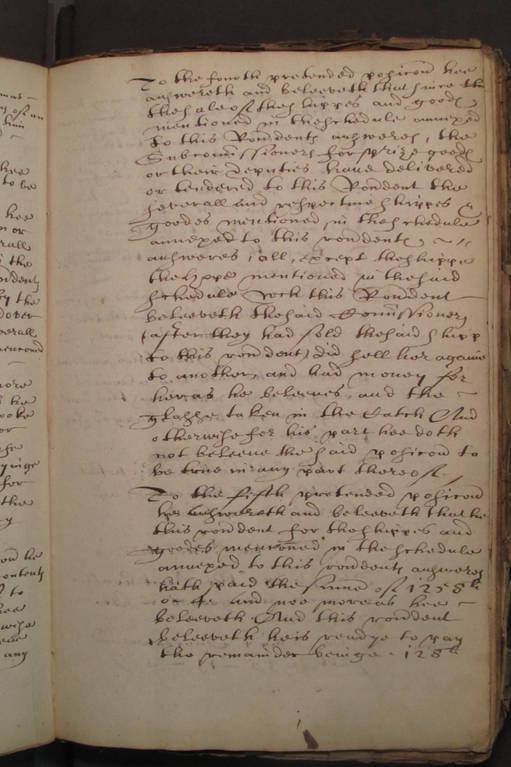 To the fourth pretended posicon hee
answereth and beleeveth that since the
the sale of the shippes and goods
mentioned in the schedule annexed
to this Rondents answeres, the
Subcomissioners for prize goods
or their Deputies have delivered
or tendered to this Rondent the
severall and respective shippes &
goodes mentioned in the schedule
annexed to this rondents
answeres, all, except the shippe
the Hope mentioned in the said
schedule wch this Rondent
beleeveth the said Comissioners
(after they had sold the said shipp
to this rondent) did sell her againe
to another, and had money for
her as he beleeves, and the
glasse taken in the Catch And
otherwise for his part hee doth
not beleeve the said posicon to
be true in any part thereof.
To the fifth pretended posicon
hee answereth and beleeveth that he
this rondent for the shippes and
goodes mentioned in the schedule
annexed to this rondents answeres
hath paid the summe of 1258 li
and noe more as hee
beleeveth And this rondent
beleeveth he is readye to pay
the remainder beinge 128 li